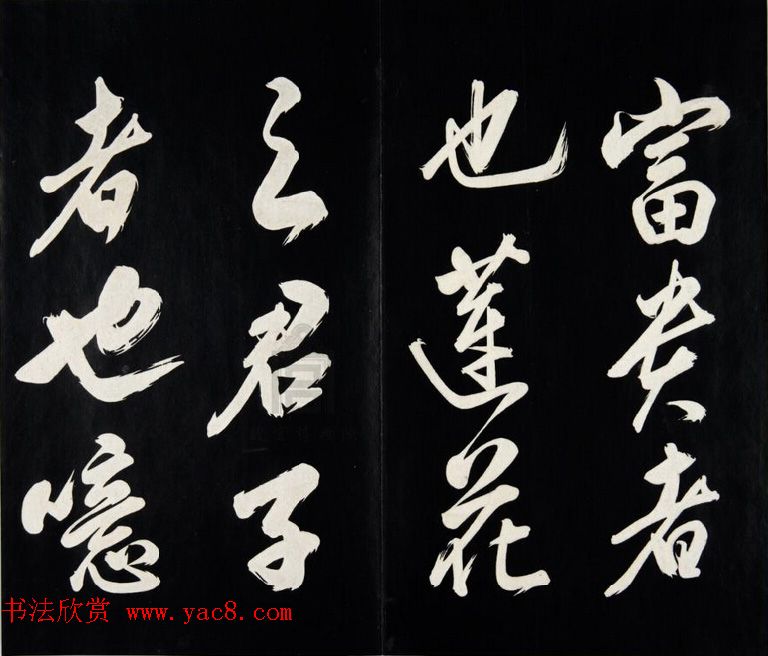 富貴者
也蓮花
之君子
者也噫
书法欣赏 www.yac8.com